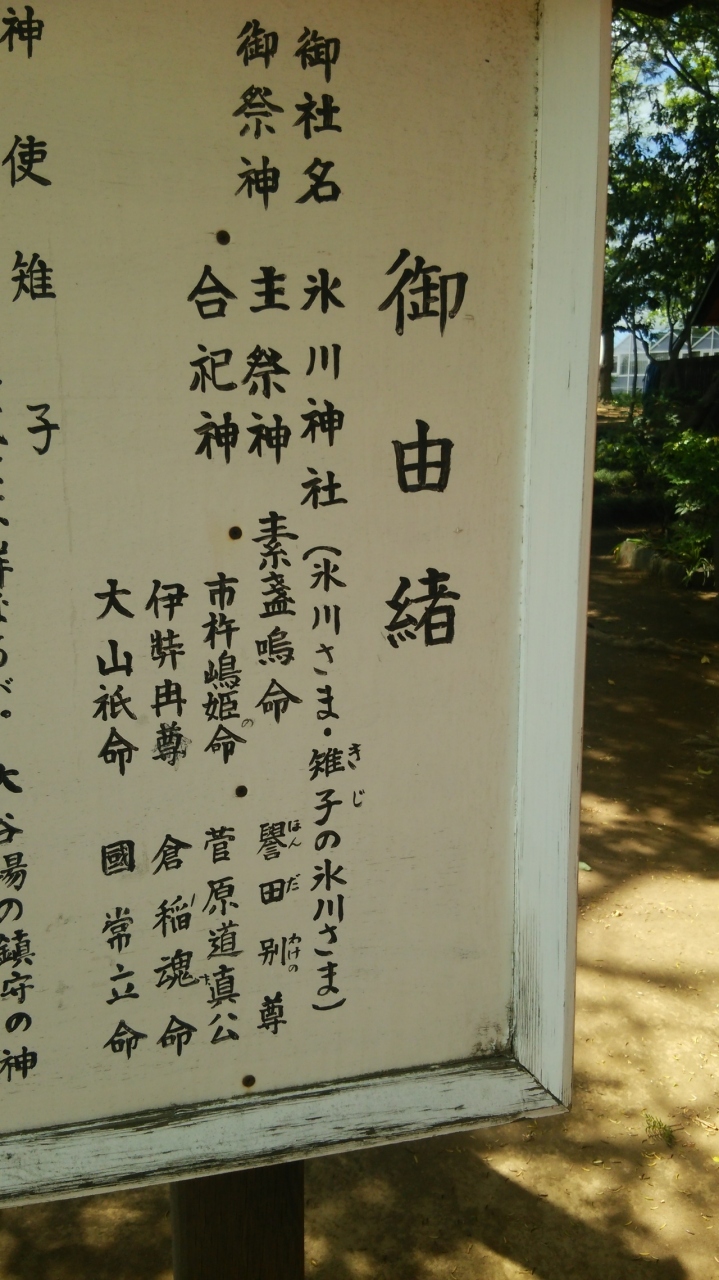 御由緒
御社名 氷川神社(氷川さま・雉子の氷川さま)
きじ
御祭神 主祭神 素盞嗚命 譽田別尊
ほんだわけの
合祀神 市杵嶋姫の命 菅原道真公
伊弉冉尊 倉稲魂命
大山祇命 國常立命
神使 雉子
大谷場の鎮守の神